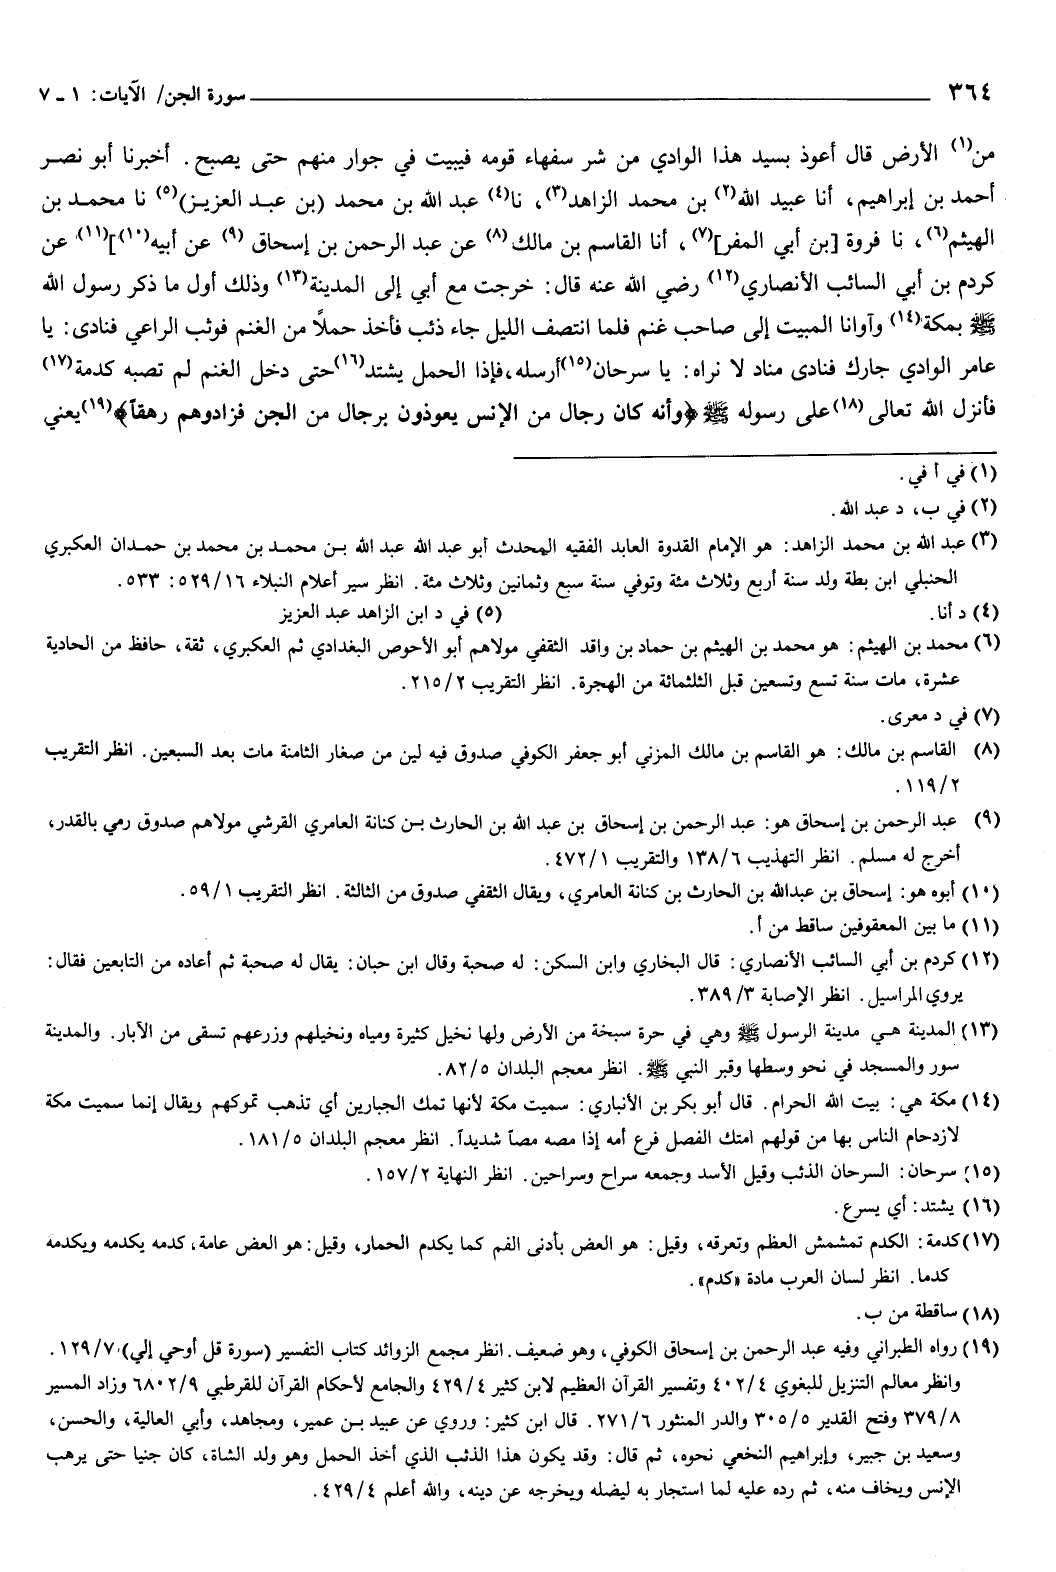 ٣٦٤ سورة الجن/ الآيات: ١ ـ ٧
من(١) الأرض قال أعوذ بسيد هذا الوادي من شر سفهاء قومه فيبيت في جوار منهم حتى يصبح. أخبرنا أبو نصر
أحمد بن إبراهيم، أنا عبيد الله(٢) بن محمد الزاهد(٣)، نا(٤) عبد الله بن محمد (بن عبد العزيز)(٥) نا محمد بن
الهيثم(٦)، نا فروة [بن أبي المفر](٧)، أنا القاسم بن مالك(٨) عن عبد الرحمن بن إسحاق (٩) عن أبيه(١٠)](١١) عن
كردم بن أبي السائب الأنصاري(١٢) رضي الله عنه قال: خرجت مع أبي إلى المدينة(١٣) وذلك أول ما ذكر رسول الله
ﷺ بمكة(١٤) وآوانا المبيت إلى صاحب غنم فلما انتصف الليل جاء ذئب فأخذ حملاً من الغنم فوثب الراعي فنادى: يا
عامر الوادي جارك فنادى مناد لا نراه: يا سرحان(١٥) أرسله، فإذا الحمل يشتد(١٦) حتى دخل الغنم لم تصبه كدمة(١٧)
فأنزل الله تعالى(١٨) على رسوله ﷺ ﴿وأنه كان رجال من الإنس يعوذون برجال من الجن فزادوهم رهقاً﴾(١٩) يعني
(١) في أ في.
(٢) في ب، د عبد الله.
(٣) عبد الله بن محمد الزاهد: هو الإمام القدوة العابد الفقيه المحدث أبو عبد الله عبد الله بن محمد بن محمد بن حمدان العكبري
الحنبلي ابن بطة ولد سنة أربع وثلاث مئة وتوفي سنة سبع وثمانين وثلاث مئة. انظر سير أعلام النبلاء ١٦/ ٥٢٩: ٥٣٣.
(٤) د أنا. (٥) في د ابن الزاهد عبد العزيز
(٦) محمد بن الهيثم: هو محمد بن الهيثم بن حماد بن واقد الثقفي مولاهم أبو الأحوص البغدادي ثم العكبري، ثقة، حافظ من الحادية
عشرة، مات سنة تسع وتسعين قبل الثلثمائة من الهجرة. انظر التقريب ٢/ ٢١٥.
(٧) في د معرى.
(٨) القاسم بن مالك: هو القاسم بن مالك المزني أبو جعفر الكوفي صدوق فيه لين من صغار الثامنة مات بعد السبعين. انظر التقريب
٢/ ١١٩.
(٩) عبد الرحمن بن إسحاق هو: عبد الرحمن بن إسحاق بن عبد الله بن الحارث بن كنانة العامري القرشي مولاهم صدوق رمي بالقدر،
أخرج له مسلم. انظر التهذيب ٦/ ١٣٨ والتقريب ١/ ٤٧٢.
(١٠) أبوه هو: إسحاق بن عبدالله بن الحارث بن كنانة العامري، ويقال الثقفي صدوق من الثالثة. انظر التقريب ١/ ٥٩.
(١١) ما بين المعقوفين ساقط من أ.
(١٢) كردم بن أبي السائب الأنصاري: قال البخاري وابن السكن: له صحبة وقال ابن حبان: يقال له صحبة ثم أعاده من التابعين فقال:
يروي المراسيل. انظر الإصابة ٣/ ٣٨٩.
(١٣) المدينة هي مدينة الرسول ﷺ وهي في حرة سبخة من الأرض ولها نخيل كثيرة ومياه ونخيلهم وزرعهم تسقى من الآبار. والمدينة
سور والمسجد في نحو وسطها وقبر النبي ﷺ. انظر معجم البلدان ٥/ ٨٢.
(١٤) مكة هي: بيت الله الحرام. قال أبو بكر بن الأنباري: سميت مكة لأنها تمك الجبارين أي تذهب تموكهم ويقال إنما سميت مكة
لازدحام الناس بها من قولهم امتك الفصل فرع أمه إذا مصه مصاً شديداً. انظر معجم البلدان ٥/ ١٨١.
(١٥) سرحان: السرحان الذئب وقيل الأسد وجمعه سراح وسراحين. انظر النهاية ٢/ ١٥٧.
(١٦) يشتد: أي يسرع.
(١٧) كدمة: الكدم تمشمش العظم وتعرقه، وقيل: هو العض بأدنى الفم كما يكدم الحمار، وقيل: هو العض عامة، كدمه يكدمه ويكدمه
كدما. انظر لسان العرب مادة «كدم».
(١٨) ساقطة من ب.
(١٩) رواه الطبراني وفيه عبد الرحمن بن إسحاق الكوفي، وهو ضعيف. انظر مجمع الزوائد كتاب التفسير (سورة قل أوحي إلي) ٧/ ١٢٩.
وانظر معالم التنزيل للبغوي ٤/ ٤٠٢ وتفسير القرآن العظيم لابن كثير ٤/ ٤٢٩ والجامع لأحكام القرآن للقرطبي ٩/ ٦٨٠٢ وزاد المسير
٨/ ٣٧٩ وفتح القدير ٥/ ٣٠٥ والدر المنثور ٦/ ٢٧١. قال ابن كثير: وروي عن عبيد بن عمير، ومجاهد، وأبي العالية، والحسن،
وسعيد بن جبير، وإبراهيم النخعي نحوه، ثم قال: وقد يكون هذا الذئب الذي أخذ الحمل وهو ولد الشاة، كان جنيا حتى يرهب
الإنس ويخاف منه، ثم رده عليه لما استجار به ليضله ويخرجه عن دينه، والله أعلم ٤/ ٤٢٩.